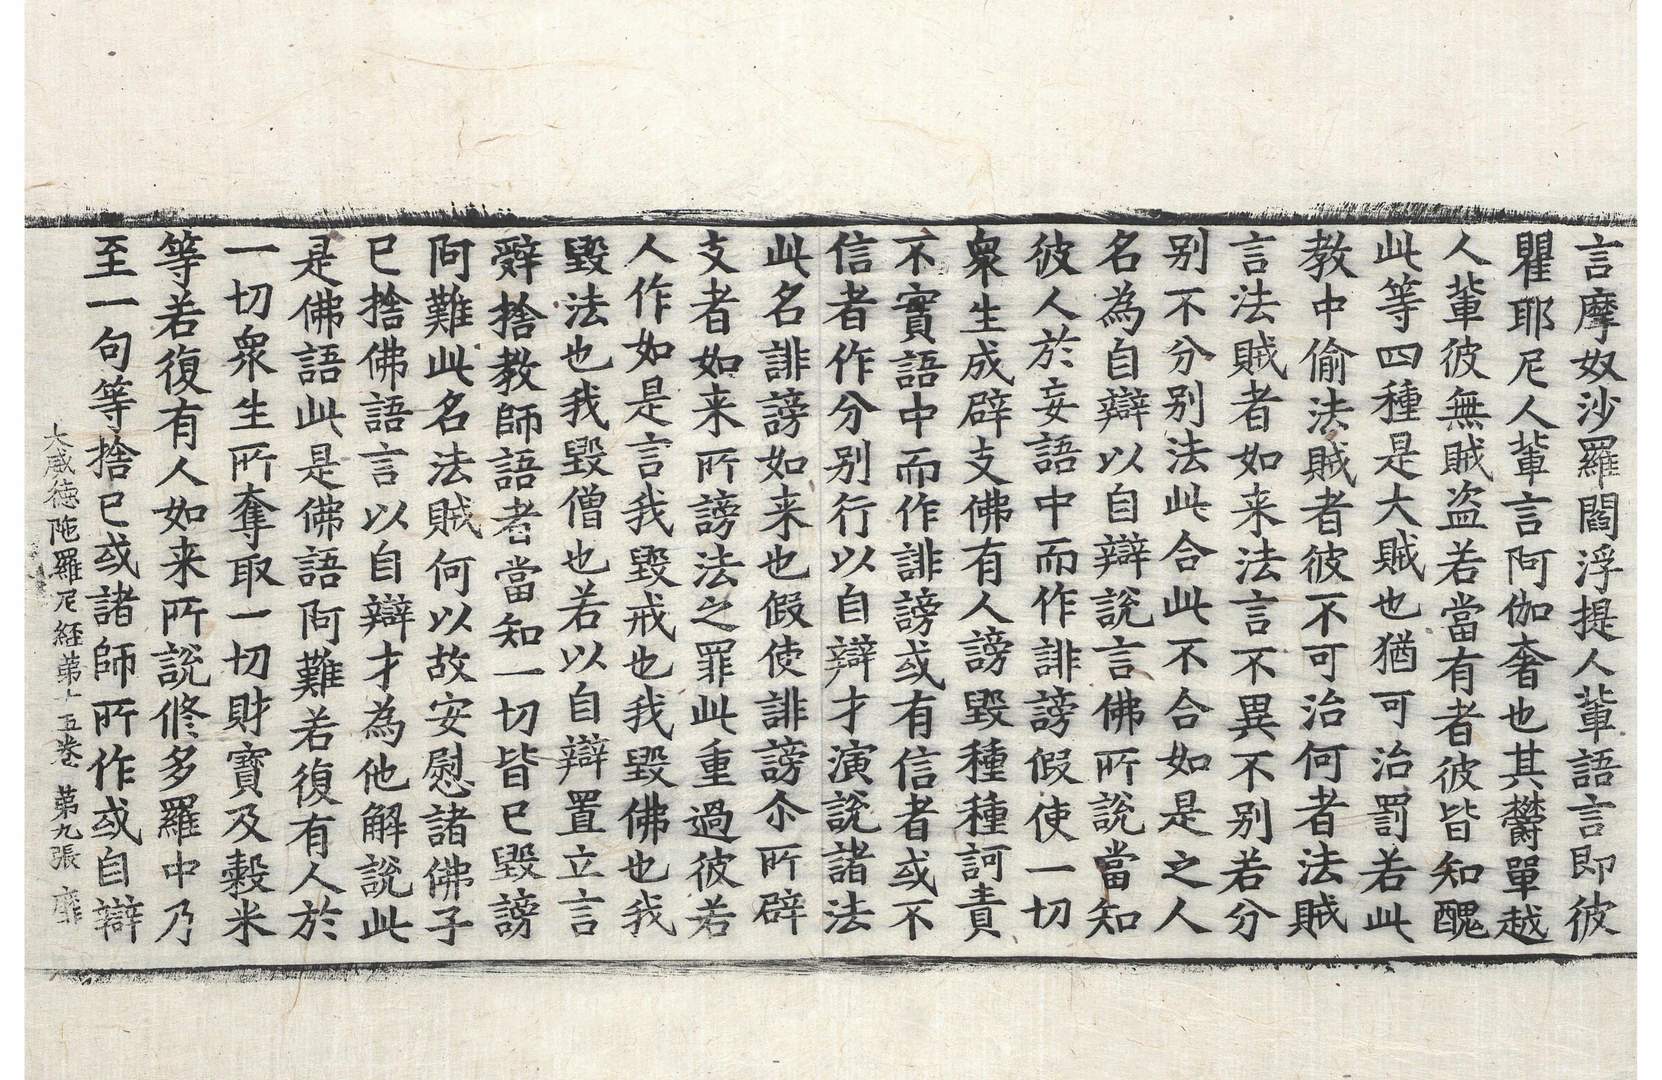 言摩奴沙羅閻浮提人輩語言即彼
瞿耶尼人輩言阿伽奢也其欝單越
人輩彼無賊盗若當有者彼皆知醜
此等四種是大賊也猶可治罰若此
教中偷法賊者彼不可治何者法賊
言法賊者如来法言不異不别若分
别不分别法此合此不合如是之人
名為自辯以自辯説言佛所說當知
彼人於妄語中而作誹謗假使一切
衆生成辟支佛有人謗毀種種訶責
不實語中而作誹謗或有信者或不
信者作分别行以自辯才演說諸法
此名誹謗如来也假使誹謗尒所辟
支者如来所謗法之罪此重過彼若
人作如是言我毀戒也我毀佛也我
毀法也我毀僧也若以自辯置立言
辝捨教師語者當知一切皆已毀謗
阿難此名法賊何以故安慰諸佛子
已捨佛語言以自辯才為他解說此
是佛語此是佛語阿難若復有人於
一切衆生所奪取一切財寶及穀米
等若復有人如来所説修多羅中乃
至一句等捨已或諸師所作或自辯
大威徳陁羅尼経第十五卷 第九張 靡